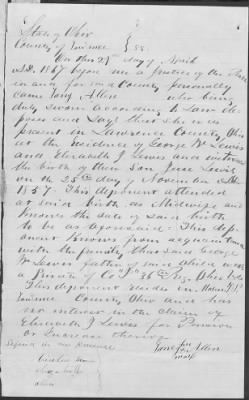 State of Ohio
County of Lawrence } SS.
On this 29 day of April
A.D. 1867 before me a Justice of the Peace
in and for said County personally
came Jane Allen who being
duly sworn according to Law de
poses and Says that she was
present in Lawrence County Ohio
at the residence of George W Lewis
and Elizabeth J Lewis and witness
the birth of their Son Lewis
on the 25th day of November A.D.
1857. This deponent attended
at said birth as Midwife and
knows the date of said birth
to be as aforesaid. This dep
onent knows from acquaintance
with the family that said George
W Lewis father of said child was
a Private of Co 36th Reg. Ohio Vols
This deponent resides in
Lawrence County Ohio and has
no interest in the claim of
Elizabeth J Lewis for Pension
or Increase thereof
Signed in our presence Jane her Allen
mark